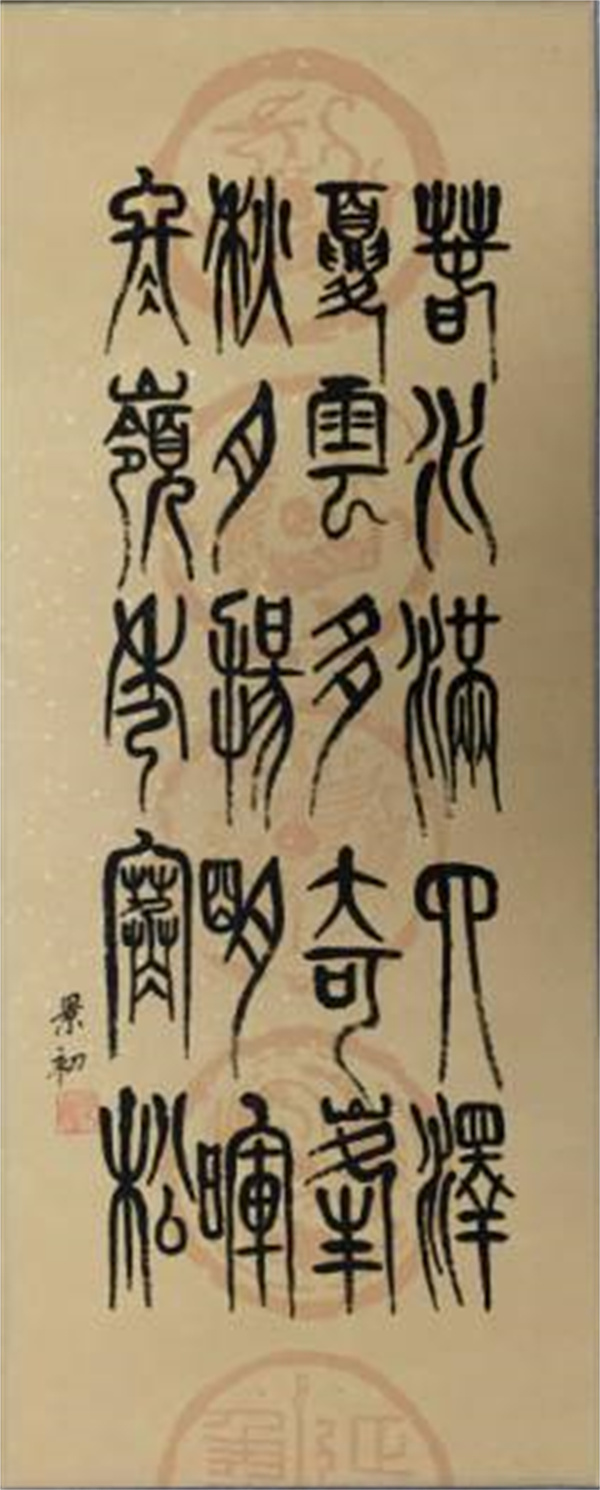 春水滿四澤
夏雲多奇峯
秋月揚明暉
冬嶺秀寒松
景初